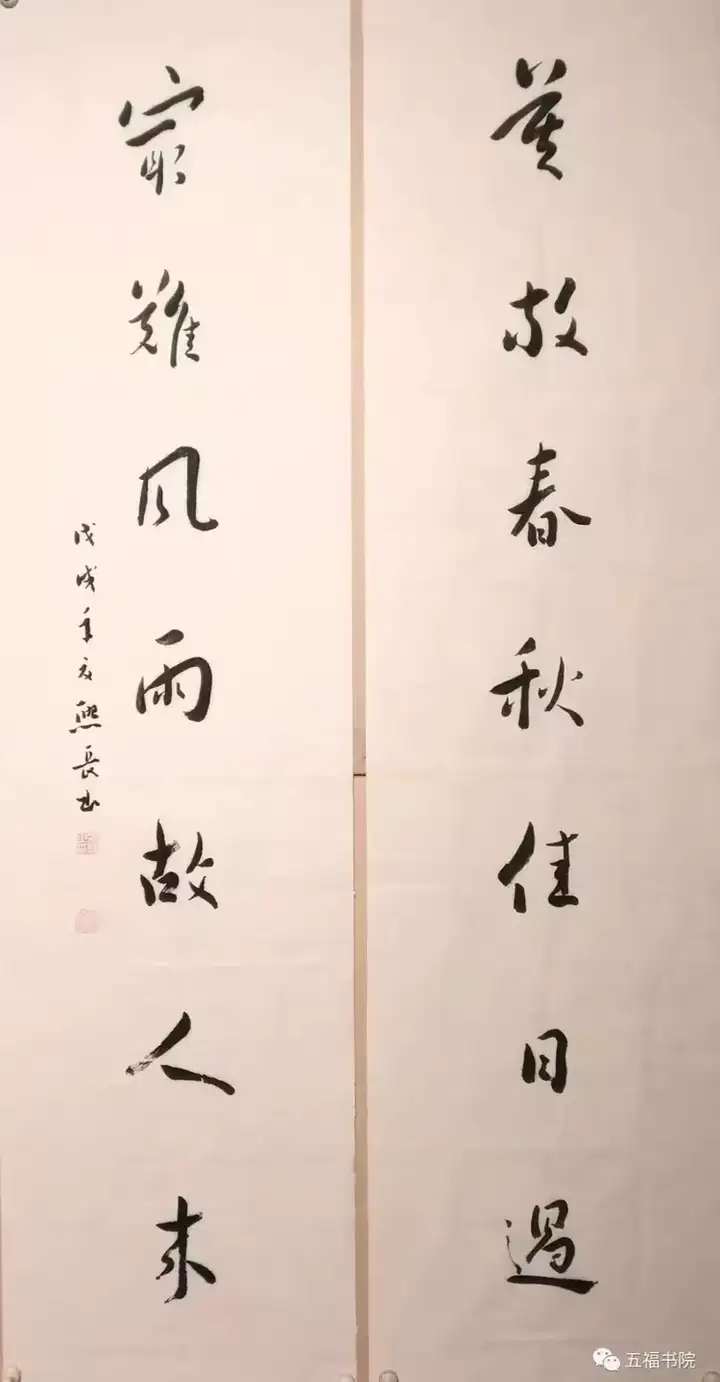 莫放春秋佳日過
最難風雨故人來
戊戌年夏熊長書
五福书院